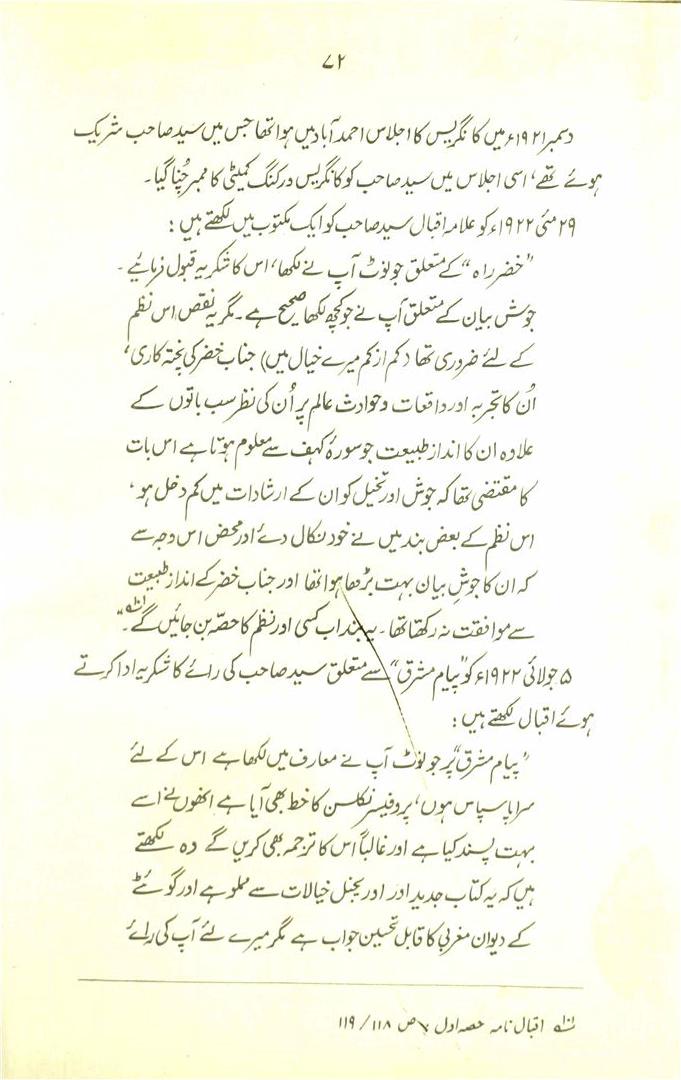 ۷۲
دسمبر ۱۹۲۱ء میں کانگریس کا اجلاس احمد آباد میں ہوا تھا جس میں سید صاحب شریک
ہوئے تھے، اسی اجلاس میں سید صاحب کو کانگریس ورکنگ کمیٹی کا ممبر چُنا گیا۔
۲۹ مئی ۱۹۲۲ء کو علامہ اقبال سید صاحب کو ایک مکتوب میں لکھتے ہیں :
"خضر راہ" کے متعلق جو نوٹ آپ نے لکھا، اس کا شکریہ قبول فرمائیے۔
جوش بیان کے متعلق آپ نے جو کچھ لکھا صحیح ہے۔ مگر یہ نقص اس نظم
کے لئے ضروری تھا (کم از کم میرے خیال میں) جناب خضر کی پختہ کاری،
اُن کا تجربہ اور واقعات و حوادث عالم پر اُن کی نظر سب باتوں کے
علاوہ ان کا انداز طبیعت جو سورۂ کہف سے معلوم ہوتا ہے اس بات
کا مقتضی تھا کہ جوش اور تخیل کو ان کے ارشادات میں کم دخل ہو،
اس نظم کے بعض بند میں نے خود نکال دئے اور محض اس وجہ سے
کہ ان کا جوشِ بیان بہت بڑھا ہوا تھا اور جناب خضر کے انداز طبیعت
سے موافقت نہ رکھتا تھا۔ یہ بند اب کسی اور نظم کا حصّہ بن جائیں گے۔"
۵ جولائی ۱۹۲۲ء کو "پیام مشرق" سے متعلق سید صاحب کی رائے کا شکریہ ادا کرتے
ہوئے اقبال لکھتے ہیں :
"پیام مشرق" پر جو نوٹ آپ نے معارف میں لکھا ہے اس کے لئے
سراپا سپاس ہوں، پروفیسر نکلسن کا خط بھی آیا ہے انھوں نے اسے
بہت پسند کیا ہے اور غالباً اس کا ترجمہ بھی کریں گے وہ لکھتے
ہیں کہ یہ کتاب جدید اور اوریجنل خیالات سے مملو ہے اور گوئٹے
کے دیوان مغربی کا قابل تحسین جواب ہے مگر میرے لئے آپ کی رائے
اقبال نامہ حصہ اول ص ۱۱۸ / ۱۱۹